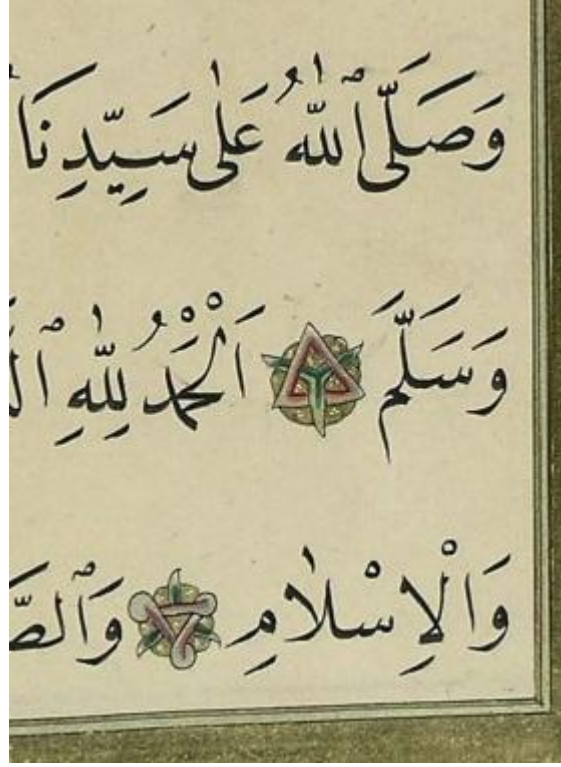 وَصَلَّى ٱللّٰهُ عَلٰى سَيِّدِنَا
وَسَلَّمَ اَلْحَمْدُ لِلّٰهِ
وَالْاِسْلَامِ